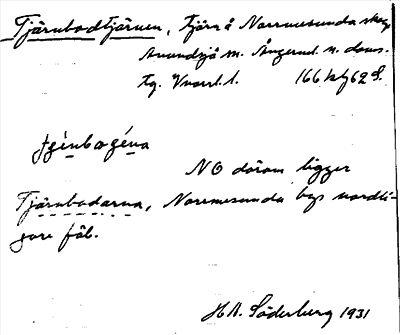 Tjärnbodtjärnen, Tjärn å Norrmesunda skog
Anundsjö sn. Ångerml. n. doms.
tg. Vnorrl. l. 166
NO därom ligger
Tjärnbodarna, Norrmesunda bys nordli-
gare fäb.
H.B. Söderberg 1931